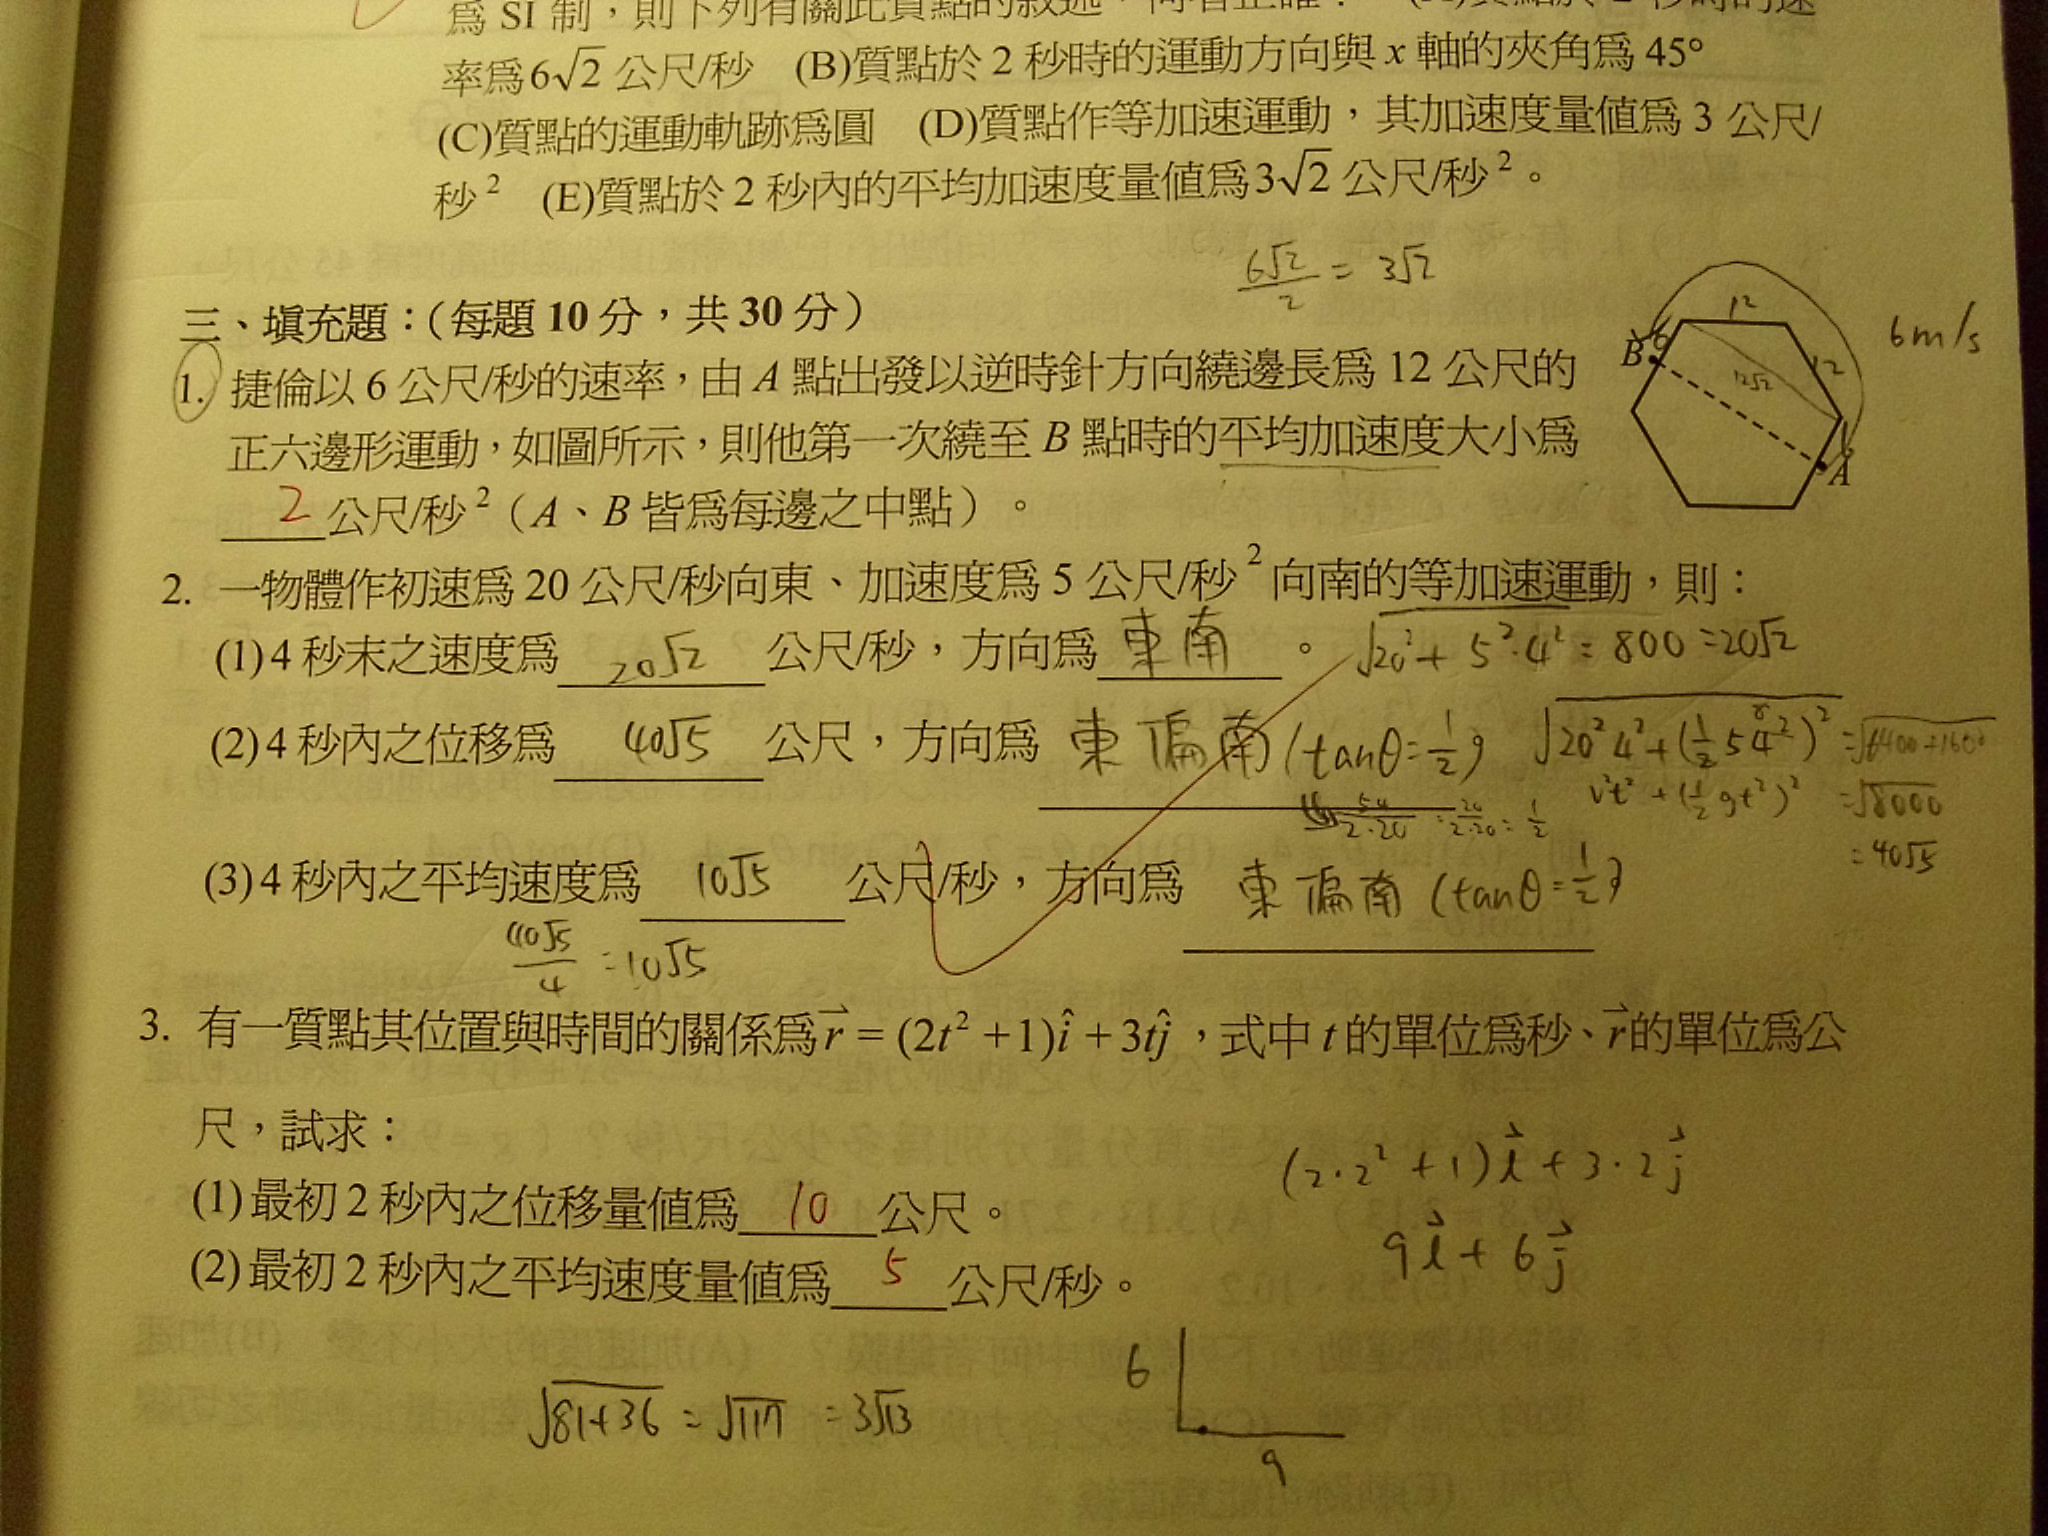 為 SI 制，則下列有關此質點的敘述，何者正確？ (A)質點於 2 秒時的速
率為6√2 公尺/秒 (B)質點於 2 秒時的運動方向與 x 軸的夾角為 45°
(C)質點的運動軌跡為圓 (D)質點作等加速運動，其加速度量值為 3 公尺/
秒² (E)質點於 2 秒內的平均加速度量值為3√2 公尺/秒²。
6√2/2 = 3√2
三、填充題：（每題 10 分，共 30 分）
1. 捷倫以 6 公尺/秒的速率，由 A 點出發以逆時針方向繞邊長為 12 公尺的
正六邊形運動，如圖所示，則他第一次繞至 B 點時的平均加速度大小為
2 公尺/秒²（A、B 皆為每邊之中點）。
12
6m/s
B
6
12
12√2
A
2. 一物體作初速為 20 公尺/秒向東、加速度為 5 公尺/秒² 向南的等加速運動，則：
(1) 4 秒末之速度為 20√2 公尺/秒，方向為 東南 。 √20²+5²·4² = 800 = 20√2
(2) 4 秒內之位移為 40√5 公尺，方向為 東偏南(tanθ=1/2) √20²4²+(1/2 5 4²)² = √6400+1600
v²t² + (1/2 gt²)² = √8000
5·4/2·20 = 20/2·20 = 1/2
= 40√5
(3) 4 秒內之平均速度為 10√5 公尺/秒，方向為 東偏南 (tanθ=1/2)
40√5/4 = 10√5
3. 有一質點其位置與時間的關係為 r⃗ = (2t² +1)î + 3tĵ ，式中 t 的單位為秒、r⃗的單位為公
尺，試求：
(2·2² + 1)i⃗ + 3·2j⃗
(1) 最初 2 秒內之位移量值為 10 公尺。
9i⃗ + 6j⃗
(2) 最初 2 秒內之平均速度量值為 5 公尺/秒。
6
√81+36 = √117 = 3√13
9